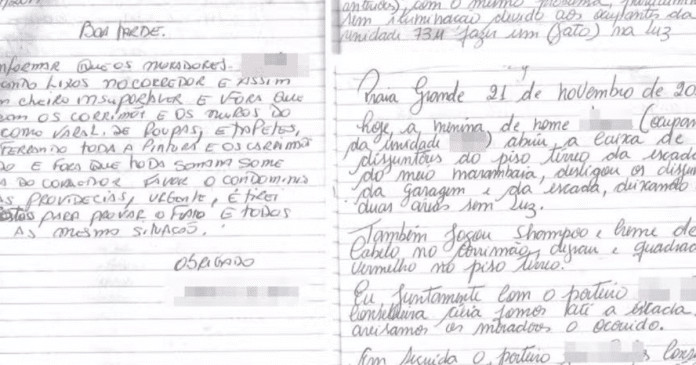 BOA TARDE.
INFORMAR QUE OS MORADORES
LIXOS NO CORREDOR E ASSIM
CHEIRO INSUPORTAVEL E FORA QUE
OS CORRIMÃO E OS MUROS DO
COMO VARAL DE ROUPAS, E TAPETES,
TODA A PINTURA E OS CARRIMÃO
DO E FORA QUE TODA SOMAM SOME
DO CORREDOR FAVOR O CONDOMINIO
AS PROVIDECIAS, URGENTE, E TIREI
FOTOS PARA PROVAR O FATO E TODOS
AS MESMO SITUAÇÃO.
OBRIGADO
com o mesmo
sem iluminação devido aos ocupantes da
unidade 734 fazer um (gato) na luz
Praia Grande 21 de novembro de 20
hoje, a menina de nome (ocupan
da unidade abriu a caixa de
disjuntores do piso térreo da escada
do meio marambaia, desligou os disjun
da garagem e da escada, deixando
duas áreas sem luz.
Também jogou Shampoo e creme de
cabelo no corrimão, degrau e quadra
vermelho no piso térreo.
Eu juntamente com o porteiro
Conselheira fomos até a
avisamos os moradores o ocorrido.
Em seguida o porteiro